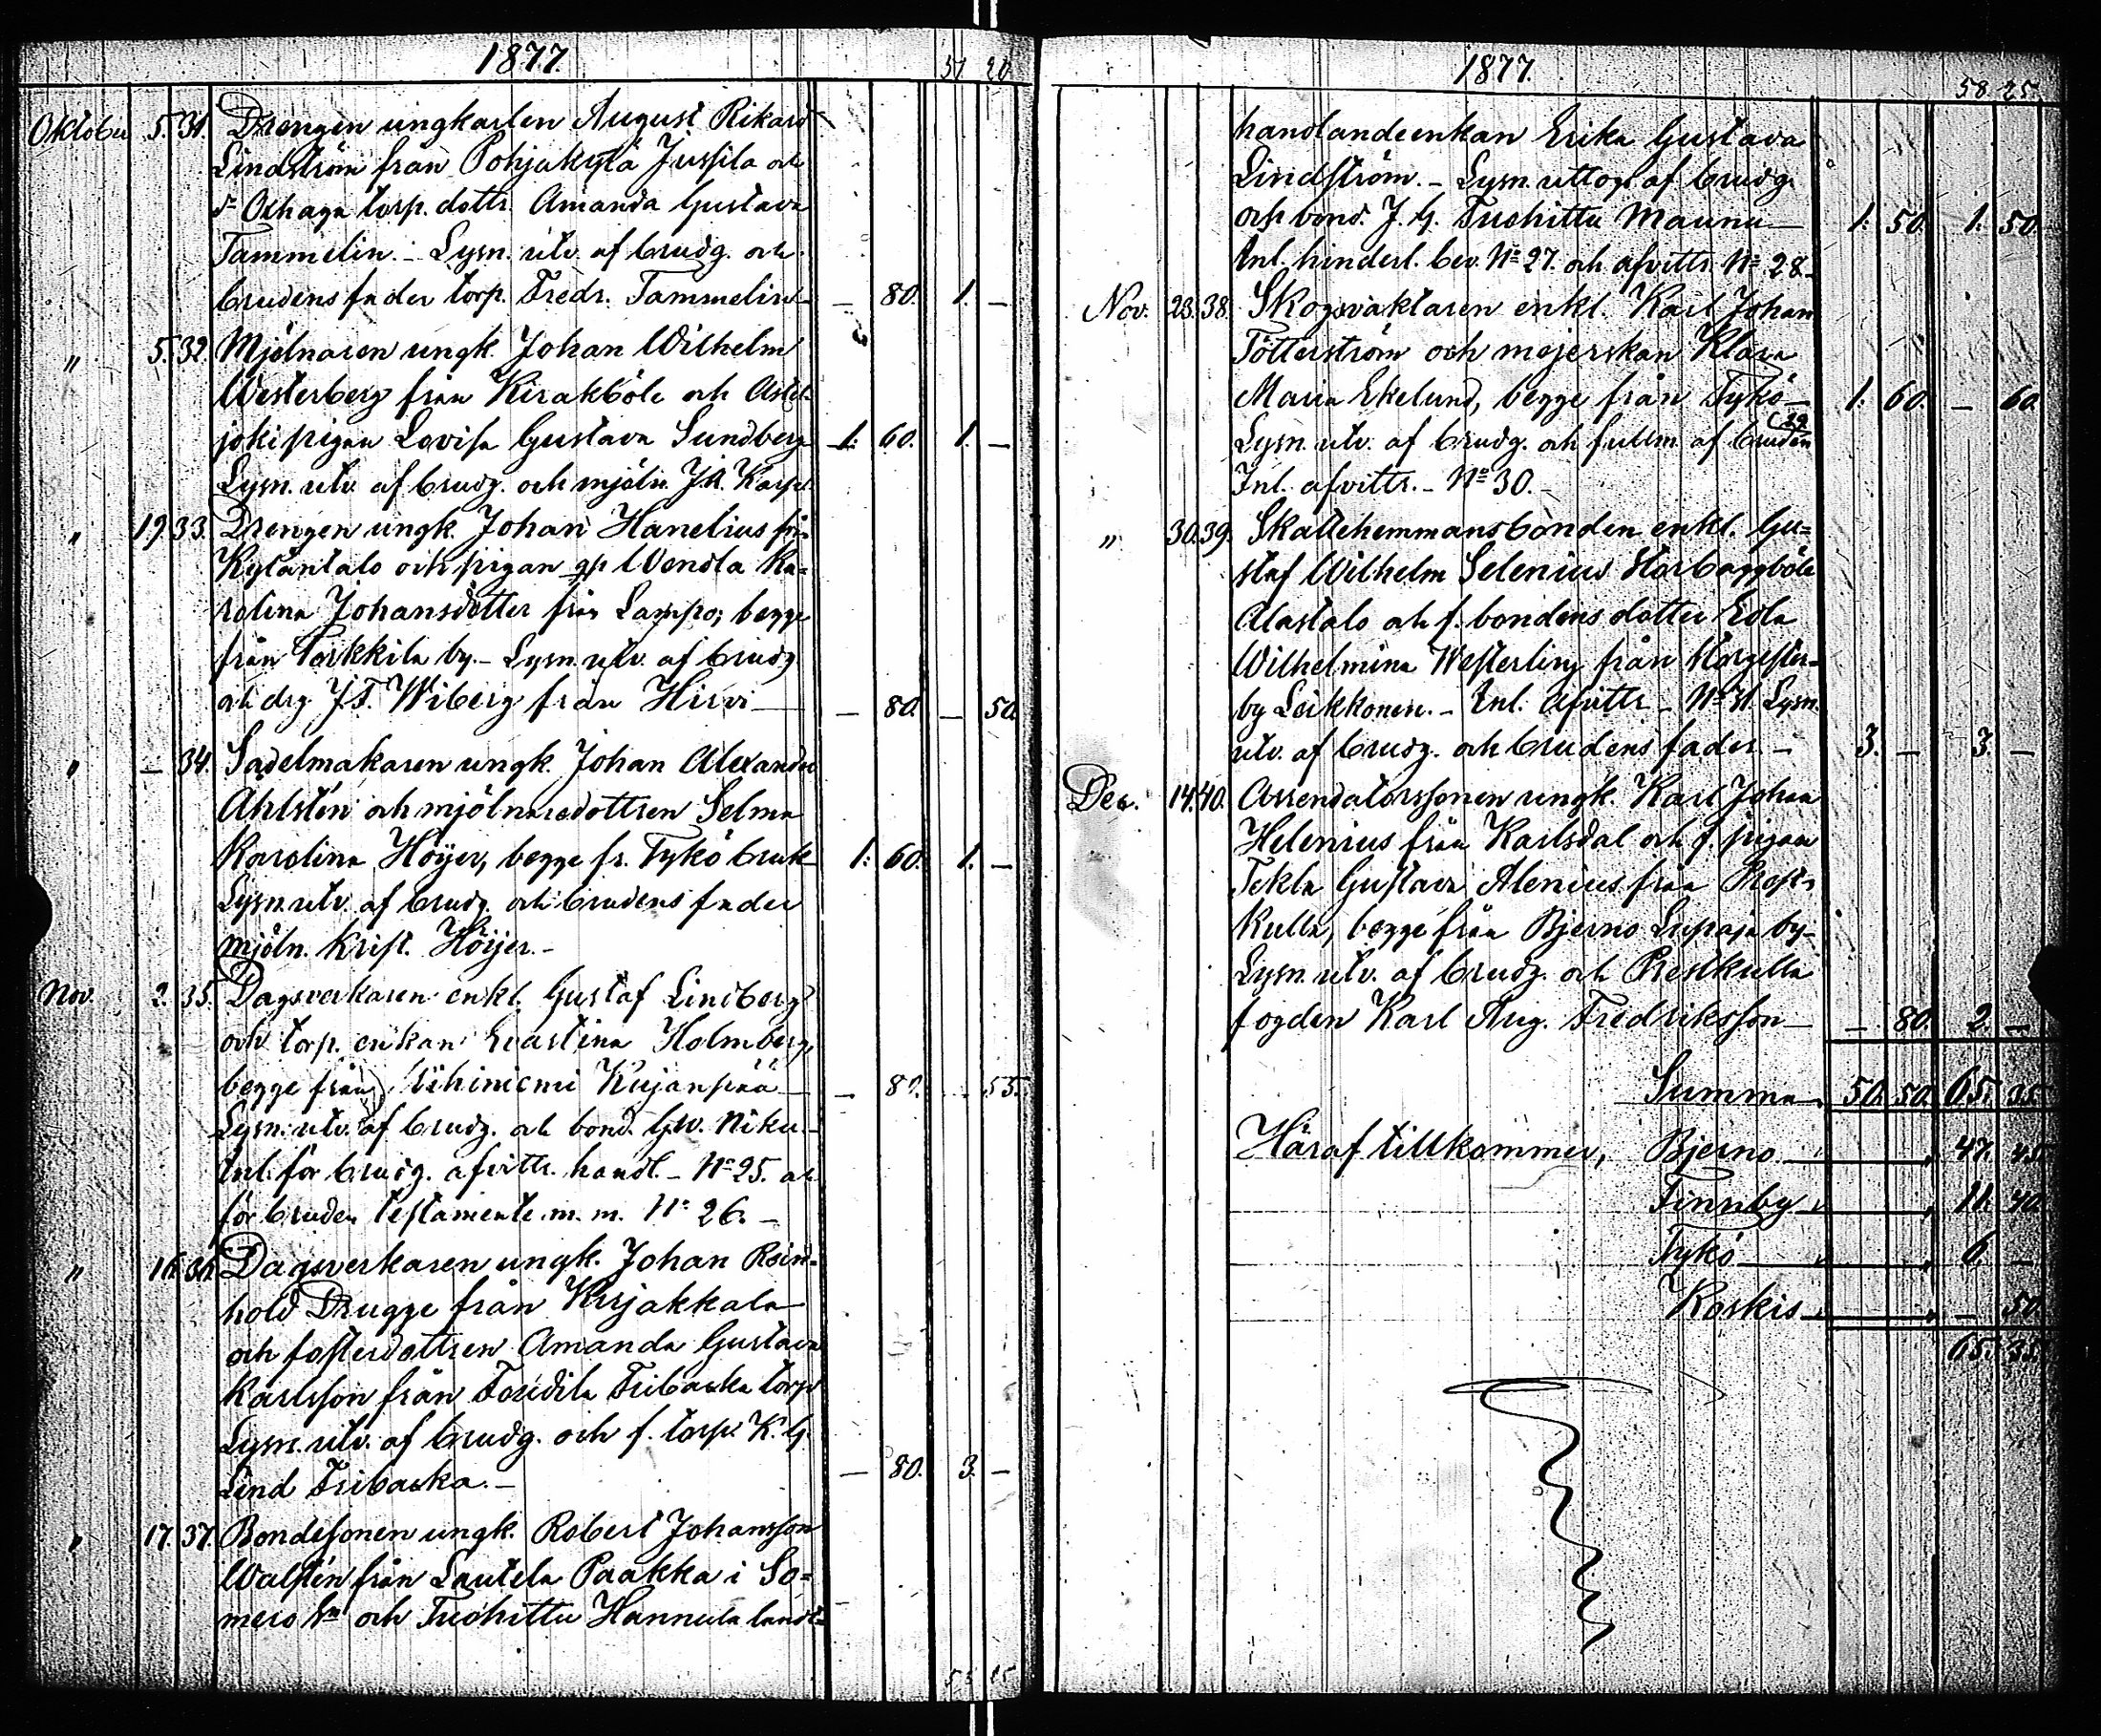 1877.
51 20
Oktober 5. 31. Drengen ungkarlen August Rikard
Lindström från Pohjakylä Jussila och
d:o Oxhaga torp. dottr. Amanda Gustava
Tammelin. – Lysn. utv. af brudg. och
brudens fader torp. Fredr. Tammelin — — 80. 1. —
„ 5. 32. Mjölnaren ungk. Johan Wilhelm
Westerberg från Kirakböle och
joki pigan Lovisa Gustava Sundberg 1: 60. 1. —
Lysn. utv. af brudg. och mjöln.
„ 19. 33. Drengen ungk. Johan Hanelius från
Kyläntalo och pigan Wendla Ka=
rolina Johansdotter från Lampo, begge
från Torkkila by. – Lysn. utv. af brudg.
och drg J. F. Wiberg från Hirvi — — 80. — 50.
„ — 34. Sadelmakaren ungk. Johan Alexander
Ahlstén och mjölnaredottren Selma
Karolina Höijer, begge fr. Tykö bruk 1: 60. 1. —
Lysn. utv. af brudg. och brudens fader
mjöln. Krist. Höijer. –
Nov. 2. 35. Dagsverkaren enkl. Gustaf Lindberg
och torp. enkan Evastina Holmberg,
begge från Kujanpää — — 80. 55.
Lysn. utv. af brudg. och bond. Niku. –
Inl. för brudg. afvittr. handl. – No 25. och
för bruden testamente m. m. No 26. –
„ 16. 36. Dagsverkaren ungk. Johan Rein=
hold Drugge från Kirjakkala
och fosterdottren Amanda Gustava
Karlsson från Fribacka torp
Lysn. utv. af brudg. och f. torp. K. G.
Lind Fribacka. – — 80. 3. —
„ 17. 37. Bondesonen ungk. Robert Johansson
Walstén från Lautela Paakka i So=
mero s:n och Tuohittu Hannula
1877.
58 25
handlandeenkan Erika Gustava
Lindström. – Lysn. uttog. af brudg.
och bond. J. G. Tuohittu Maunu — 1. 50. 1. 50.
Inl. hinderl. bev. No 27. och afvittr. No 28. –
Nov. 23. 38. Skogsvaktaren enkl. Karl Johan
Tötterström och mejerskan Klara
Maria Ekelund, begge från Tykö — 1. 60. — 60.
Lysn. utv. af brudg. och fullm. af bruden (29
Inl. afvittr. – No 30. –
„ 30. 39. Skattehemmansbonden enkl. Gu=
staf Wilhelm Selenius
Alastalo och f. bondens dotter Edla
Wilhelmina Westerling från
by Leikkonen. – Inl. afvittr. – No 31. Lysn.
utv. af brudg. och brudens fader. – 3. — 3. —
Dec. 14. 40. Arrendatorssonen ungk. Karl Johan
Helenius från Karlsdal och f. pigan
Tekla Gustava Alenius från Prest=
kulla, begge från Bjerno Lupaja by –
Lysn. utv. af brudg. och Prestkulla
fogden Karl Aug. Fredriksson — — 80. 2. —
Summa 50. 50. 65. 35.
Häraf tillkommer, Bjerno 47. 45.
Finnby 11. 40.
Tykö 6. —
Koskis — 50.
65. 35.